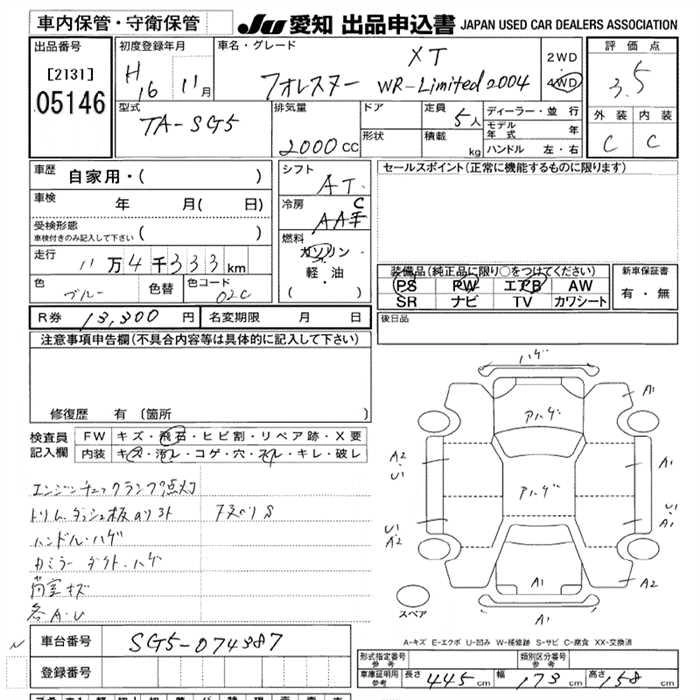 車内保管・守衛保管
JU 愛知 出品申込書 JAPAN USED CAR DEALERS ASSOCIATION
出品番号
[2131]
05146
初度登録年月
H 16 11月
車名・グレード
XT
フォレスター WR-Limited 2004
2WD
4WD
評価点
3.5
外装 内装
C C
型式
TA-SG5
排気量
2000cc
ドア
形状
定員
5人
積載
kg
ディーラー・並行
モデル年式 年
ハンドル 左・右
車歴
自家用・( )
車検
年 月( 日)
受検形態
車検付きのみ記入して下さい ( )
走行
11万4千333km
色
ブルー
色替
色コード
02C
シフト
AT
冷房
C
AA手
燃料
ガソリン・
軽・油
( )
セールスポイント(正常に機能するものに限ります)
装備品(純正品に限り○をつけてください)
PS PW エアB AW
SR ナビ TV カワシート
新車保証書
有・無
後日品
R券 13,300円
名変期限 月 日
注意事項申告欄(不具合内容等は具体的に記入して下さい)
修復歴 有 [箇所 ]
検査員
記入欄
FW キズ・飛石・ヒビ割・リペア跡・X要
内装 キズ・汚レ・コゲ・穴・スレ・キレ・破レ
エンジンチェックランプ点灯
ハンドル・ハゲ
各A・U
ハゲ
アハゲ
アハゲ
A1
A1
A2
U1
U1
A2
U1
A1
A2
A1
スペア
A-キズ E-エクボ U-凹み W-補修跡 S-サビ C-腐食 XX-交換済
車台番号
SG5-074387
登録番号
形式指定番号
参考
類別区分番号
参考
車庫証明用
参考
長さ 445cm
幅 173cm
高さ 158cm